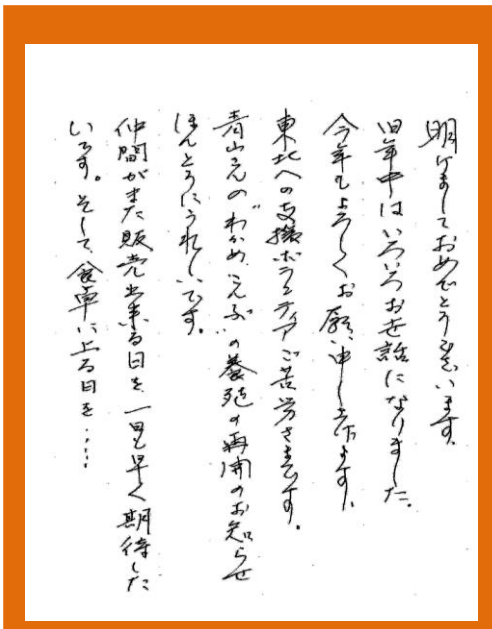 明けましておめでとうございます。
旧年中はいろいろお世話になりました。
今年もよろしくお願い申し上げます。
東北への支援ボランティアご苦労さまです。
青山さんの“わかめ、こんぶ”の養殖の再開のお知らせ
ほんとうにうれしいです。
仲間がまた販売出来る日を一日も早く期待した
いです。そして、食卓に上る日を……